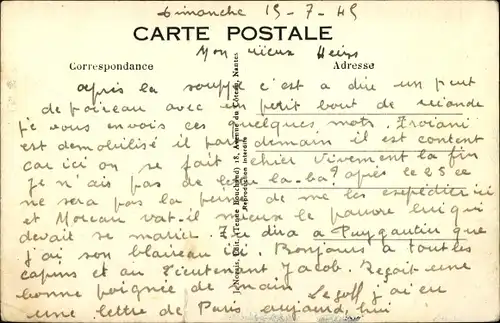 Dimanche 15-7-45
CARTE POSTALE
Mon vieux
Correspondance Adresse
après la soupe c'est a dire un peut
de poireau avec un petit bout de viande
je vous envois ces quelques mots. Troiani
est demobilisé il par demain il est content
car ici on se fait chier vivement la fin
Je n'ais pas de lettre la-ba? après le 25 ce
ne sera pas la peine de me les expedier ici
et Moreau vat-il mieux le pauvre lui qui
devait se marier. Tu dira a Puygautier que
j'ai son blaireau ici. Bonjours a tout les
copins et au Lieutenant Jacob. Reçoit une
bonne poignie de main
Legoff j'ai eu
une lettre de Paris aujourd'hui
18, Avenue du Côteau, Nantes
Reproduction interdite